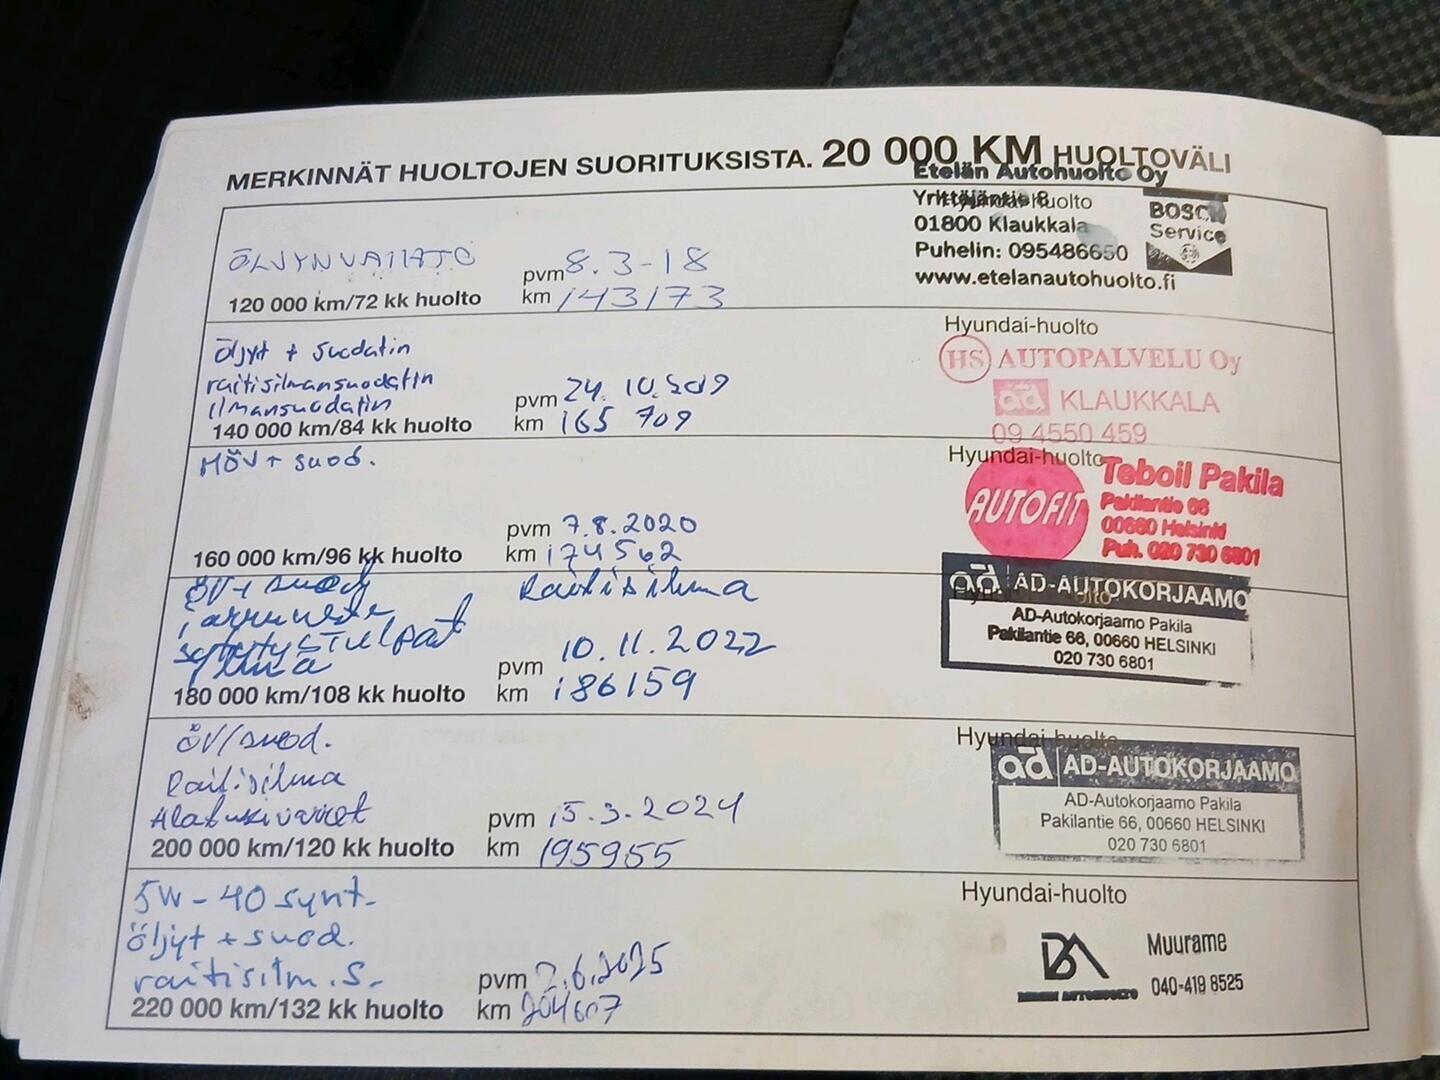 MERKINNÄT HUOLTOJEN SUORITUKSISTA. 20 000 KM HUOLTOVÄLI
Etelän Autohuolto Oy
Yrittäjäntie 8
01800 Klaukkala
Puhelin: 095486650
www.etelanautohuolto.fi
BOSCH
Service
ÖLJYNVAIHTO
pvm 8.3-18
120 000 km/72 kk huolto
km 143173
Hyundai-huolto
öljyt + suodatin
raitisilmansuodatin
ilmansuodatin
pvm 24.10.2019
140 000 km/84 kk huolto
km 165 709
HS AUTOPALVELU Oy
ad KLAUKKALA
09 4550 459
Hyundai-huolto
MÖV + suod.
pvm 7.8.2020
160 000 km/96 kk huolto
km 174562
AUTOFIT
Teboil Pakila
Pakilantie 66
00660 Helsinki
Puh. 020 730 6801
Hyundai-huolto
ÖV+ suod Raitisilma
jarruneste
sytytystulpat
ilma
pvm 10.11.2022
180 000 km/108 kk huolto
km 186159
ad AD-AUTOKORJAAMO
AD-Autokorjaamo Pakila
Pakilantie 66, 00660 HELSINKI
020 730 6801
Hyundai-huolto
ÖV/suod.
Raitisilma
Alatukivarret
pvm 15.3.2024
200 000 km/120 kk huolto
km 195955
ad AD-AUTOKORJAAMO
AD-Autokorjaamo Pakila
Pakilantie 66, 00660 HELSINKI
020 730 6801
Hyundai-huolto
5W-40 synt.
öljyt + suod.
raitisilm.s.
pvm 2.6.2025
220 000 km/132 kk huolto
km 204607
Hyundai-huolto
AUTOHUOLTO
Muurame
040-419 8525